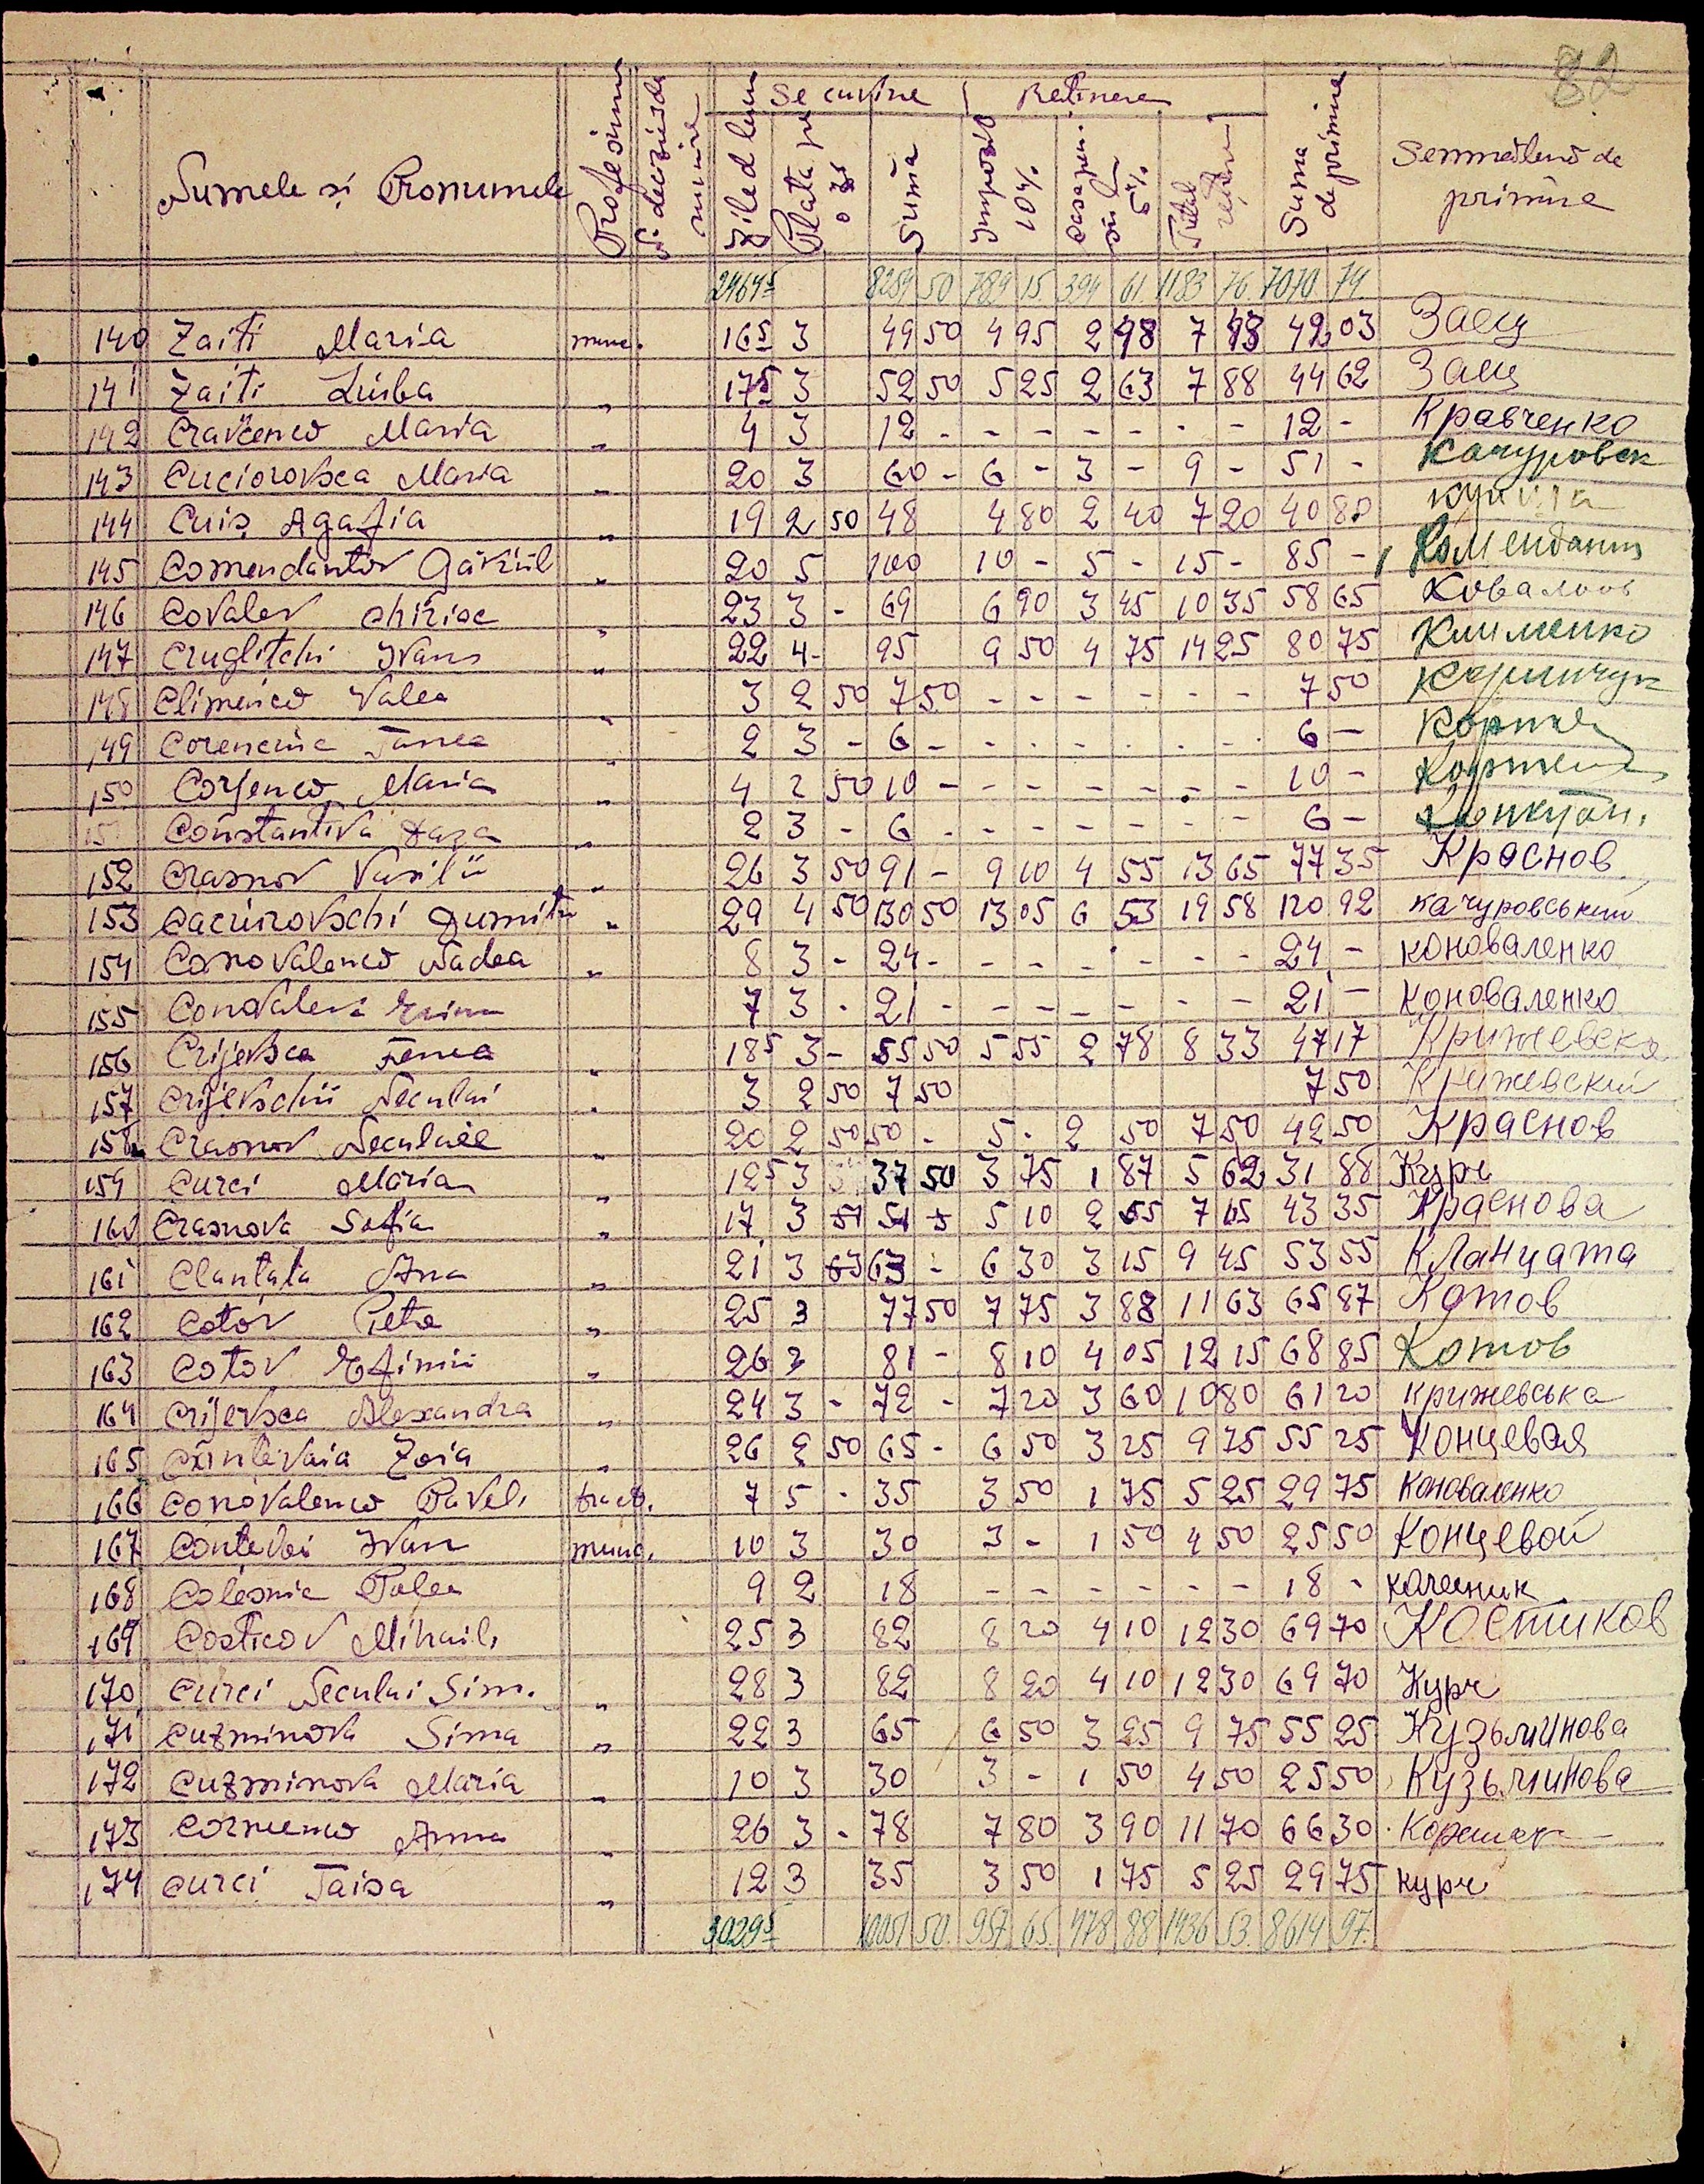 82
Numele si Pronumele Profesiunea Zile de lucru Plata pe o zi Se cuvine Suma Retinere Impozit 10% 5% Total Suma de primire Semnatura de primire
2464⁵ 8289 50 789 15 394 61 1183 76 7070 74
140 Zaiti Maria munc. 16⁵ 3 49 50 4 95 2 48 7 43 42 03 Заец
141 Zaiti Liuba " 17⁵ 3 52 50 5 25 2 63 7 88 44 62 Заец
142 Cravcenco Maria " 4 3 12 - - - - - - - 12 - Кравченко
143 Cuciorovsca Maria " 20 3 60 - 6 - 3 - 9 - 51 - Качуровск
144 Cuis Agafia " 19 2 50 48 4 80 2 40 7 20 40 80
145 Comendantov Gavriil " 20 5 100 10 - 5 - 15 - 85 - Комендант
146 Covalev Chiriac " 23 3 - 69 6 90 3 45 10 35 58 65
147 Cruglitchi Ivan " 22 4 - 95 9 50 4 75 14 25 80 75 Клименко
148 Climenco Valea " 3 2 50 7 50 - - - - - - 7 50
149 Tanea " 2 3 - 6 - - - - - - - 6 -
150 Corjenco Maria " 4 2 50 10 - - - - - - - 10 -
151 Constantiva " 2 3 - 6 - - - - - - - 6 -
152 Crasnov Vasilii " 26 3 50 91 - 9 10 4 55 13 65 77 35 Краснов
153 Caciurovschi Dumitru " 29 4 50 130 50 13 05 6 53 19 58 120 92 качуровський
154 Conovalenco Nadea " 8 3 - 24 - - - - - - - 24 - коноваленко
155 7 3 - 21 - - - - - - - 21 - Коноваленко
156 Crijevsca Fenea " 18⁵ 3 - 55 50 5 55 2 78 8 33 47 17 Крижевска
157 Crijevschii Neculai " 3 2 50 7 50 7 50 Крижевский
158 Crasnov Neculaie " 20 2 50 50 - 5 - 2 50 7 50 42 50 Краснов
159 Curci Maria " 12⁵ 3 37 50 3 75 1 87 5 62 31 88 Курч
160 Crasnova Sofia " 17 3 51 51 - 5 10 2 55 7 65 43 35 Краснова
161 Clantata Ana " 21 3 63 63 - 6 30 3 15 9 45 53 55 Кланцата
162 Cotov Petre " 25 3 77 50 7 75 3 88 11 63 65 87 Котов
163 Cotov Efimii " 26 3 81 - 8 10 4 05 12 15 68 85 Котов
164 Crijevsca Alexandra " 24 3 - 72 - 7 20 3 60 10 80 61 20 крижевська
165 Contevaia Zoia " 26 2 50 65 - 6 50 3 25 9 75 55 25 Концевая
166 Conovalenco Pavel. tract. 7 5 - 35 3 50 1 75 5 25 29 75 Коноваленко
167 Contevoi Ivan munc. 10 3 30 3 - 1 50 4 50 25 50 Концевой
168 Colesnic Palea 9 2 18 - - - - - - 18 - колесник
169 Costicov Mihail. 25 3 82 8 20 4 10 12 30 69 70 Костиков
170 Curci Neculai Sim. " 28 3 82 8 20 4 10 12 30 69 70 Курч
171 Cuzminova Sima " 22 3 65 6 50 3 25 9 75 55 25 Кузьминова
172 Cuzminova Maria " 10 3 30 3 - 1 50 4 50 25 50 Кузьминова
173 Anna " 26 3 - 78 7 80 3 90 11 70 66 30
174 Curci Taisa " 12 3 35 3 50 1 75 5 25 29 75 курч
3029⁵ 10051 50 957 65 478 88 1436 53 8614 97